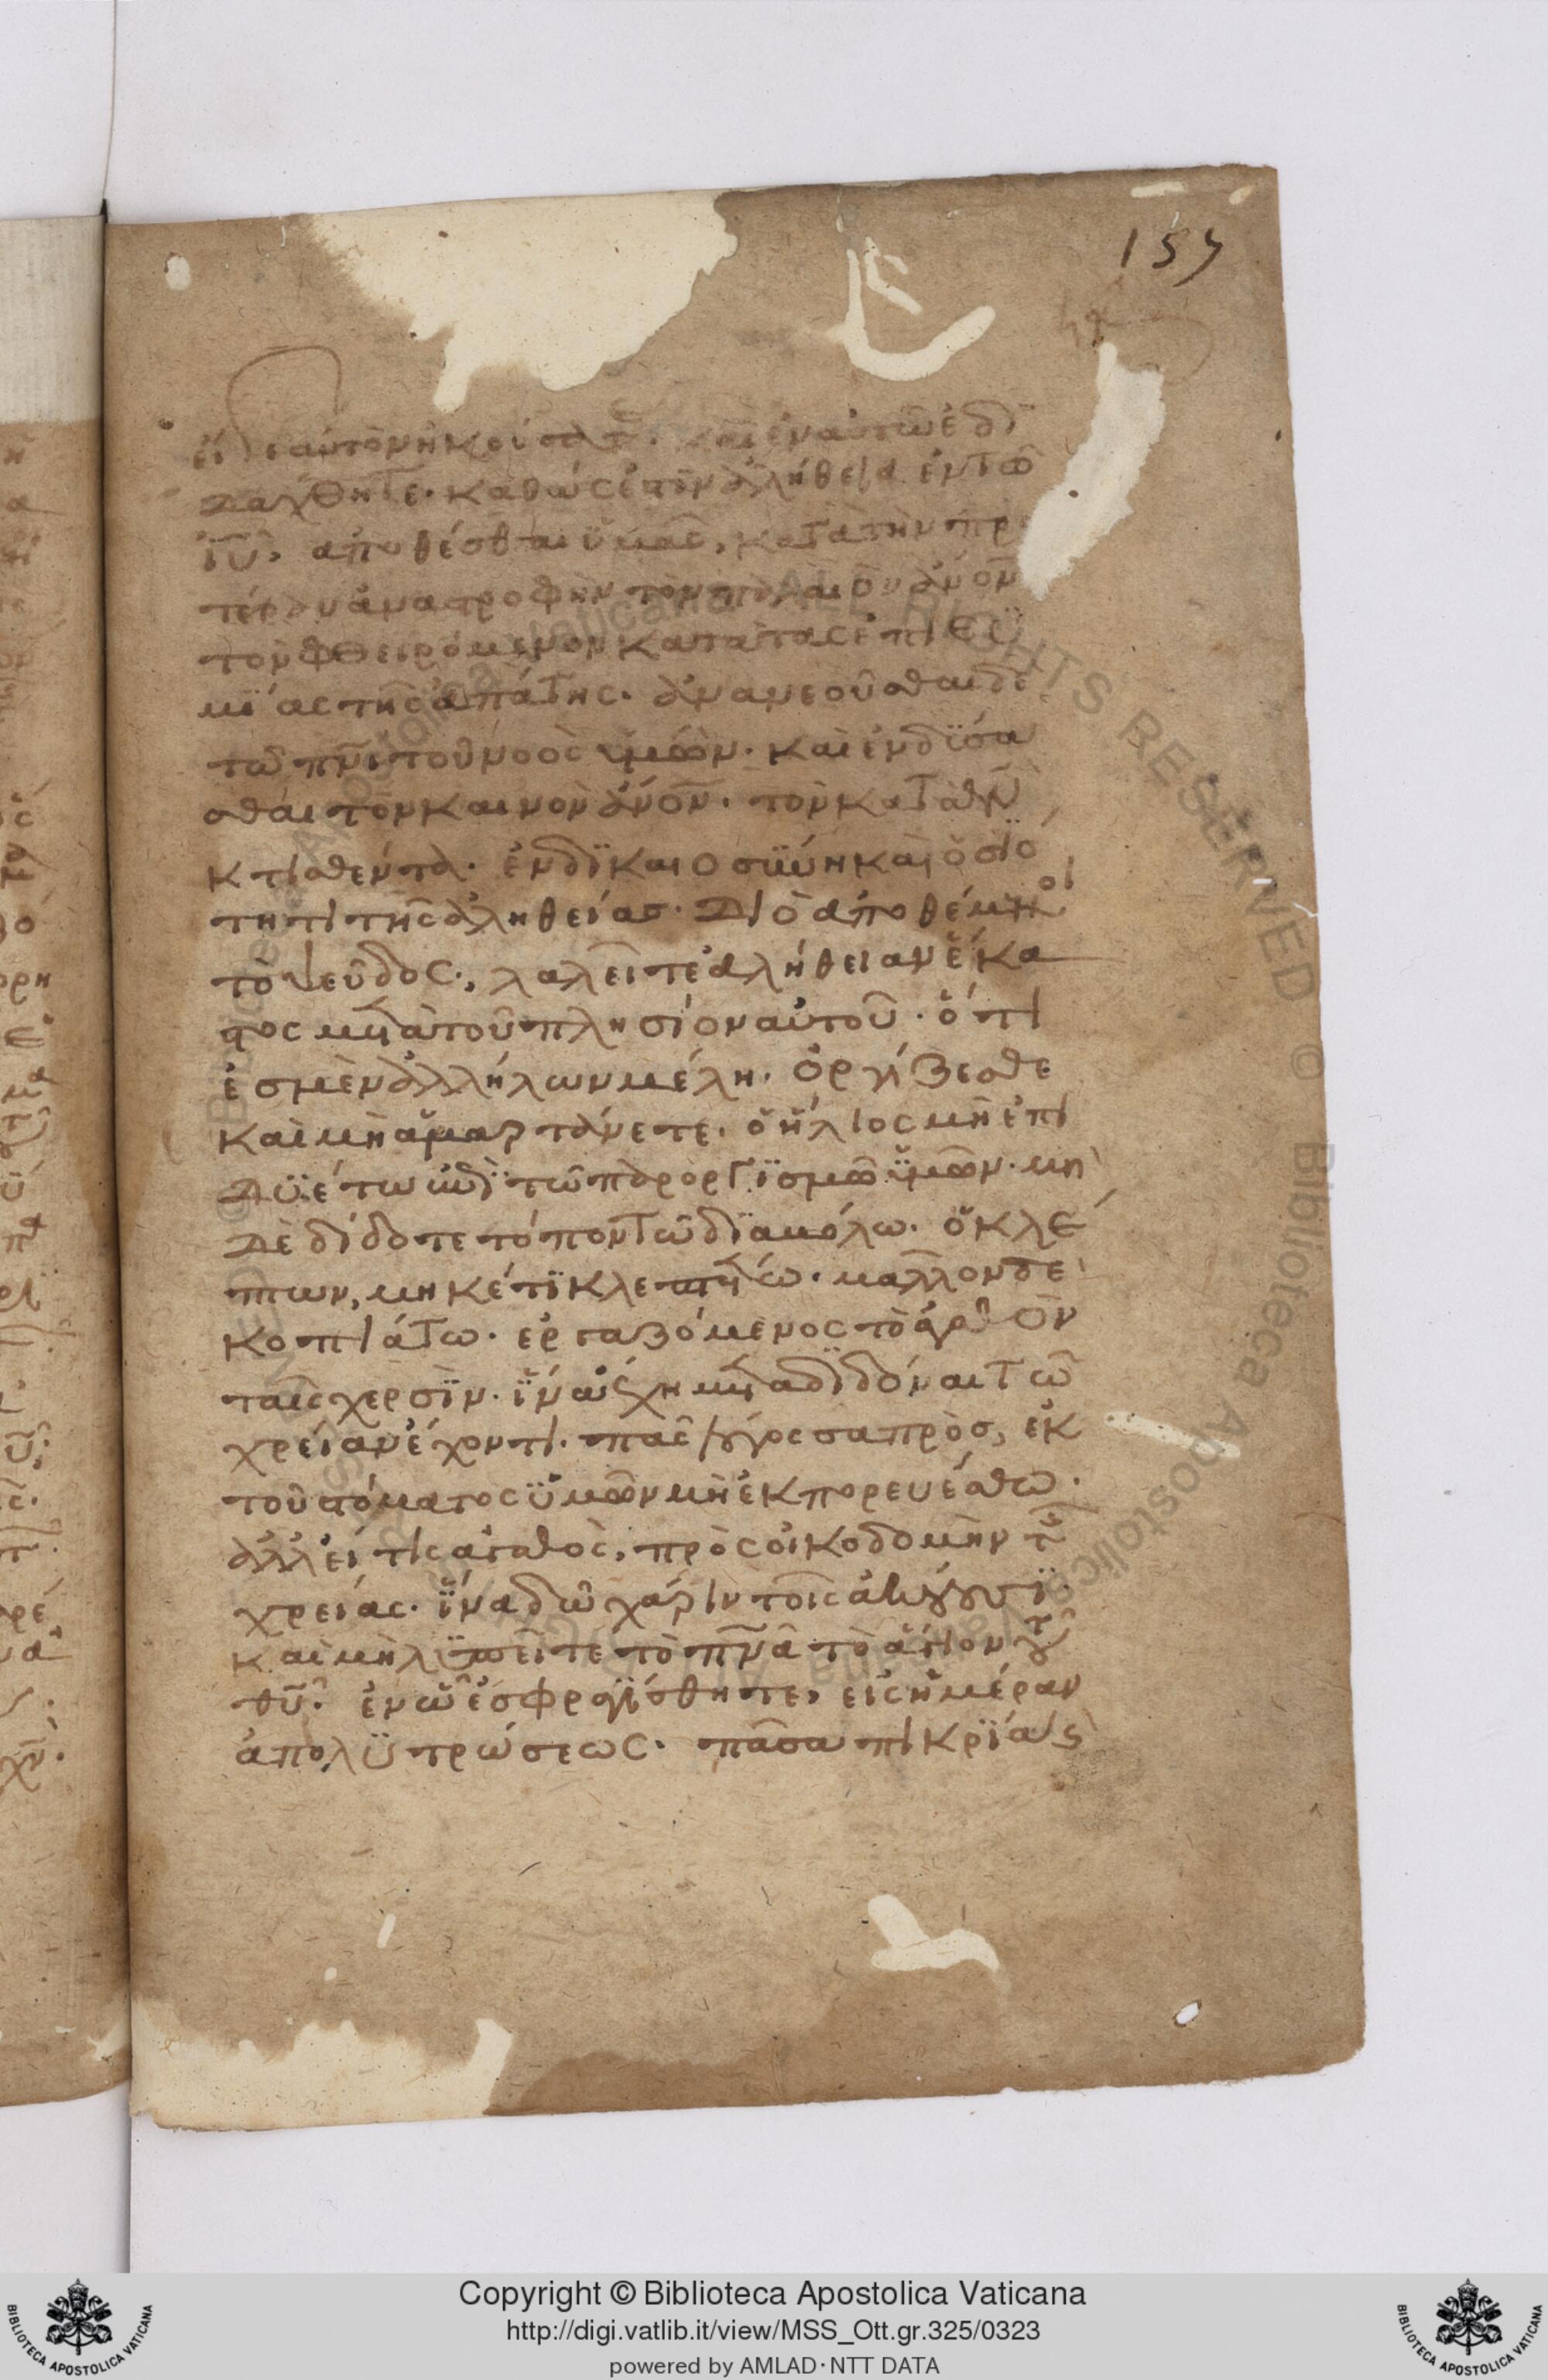 157
εἴ γε αὐτὸν ἠκούσατε. καὶ ἐν αὐτῶ ἐδι
δαχθητε. καθώς ἐστὶν ἀλήθεια ἐν τῶ
ἰῦ. αποθέσθαι ὑμᾶς, κατὰ τὴν προ
τέραν ἀναστροφὴν τὸν παλαιὸν ἄνον
τὸν φθειρόμενον κατὰ τὰς ἐπιθϋ
μΐας τῆς ἀπάτης. ἀνανεοῦσθαι δὲ
τῶ πνι τοῦ νοὸς ὑμῶν. καὶ ἐνδϊσα
σθαι τὸν καινὸν ἄνον. τὸν κατὰ θν
κτισθέντα. ἐν δϊκαιοσϋύνη καὶ ὁσϊό
τητι τῆς ἀληθείας. Διὸ ἀποθέμενοι
τὸ ψεῦδος., λαλεῖτε ἀλήθειαν ἕκα
στος μετὰ τοῦ πλησίον αὐτοῦ. ὅτι
ἐσμὲν ἀλλήλων μέλη. ὀργίζεσθε
καὶ μὴ ἁμαρτάνετε. ὁ ἥλιος μὴ ἐπι
δϋέτω ἐπὶ τῶ παροργϊσμῶ ὑμῶν. μη
δὲ δίδοτε τόπον τῶ διαβόλω. ὁ κλέ
πτων, μηκέτϊ κλεπτέτω. μᾶλλον δὲ
κοπιάτω. ἐργαζόμενος τὸ ἀγαθὸν
ταῖς χερσϊν. ἵνα ἔχη μεταδϊδόναι τῶ
χρείαν ἔχοντι. πᾶς λόγος σαπρὸς, ἐκ
τοῦ στόματος ὑμῶν μὴ ἐκπορευέσθω.
ἀλλ' εἴ τις ἀγαθὸς, πρὸς οἰκοδομὴν τῆς
χρείας. ἵνα δῶ χάριν τοῖς ἀκούουσϊ.
καὶ μὴ λϋπεῖτε τὸ πνα τὸ ἅγιον τοῦ
θῦ. ἐν ὧ ἐσφραγίσθητε, εἰς ἡμέραν
ἀπολϋτρώσεως. πᾶσα πικρϊα ϗ
Copyright © Biblioteca Apostolica Vaticana
http://digi.vatlib.it/view/MSS_Ott.gr.325/0323
powered by AMLAD·NTT DATA
BIBLIOTECA APOSTOLICA VATICANA
BIBLIOTECA APOSTOLICA VATICANA